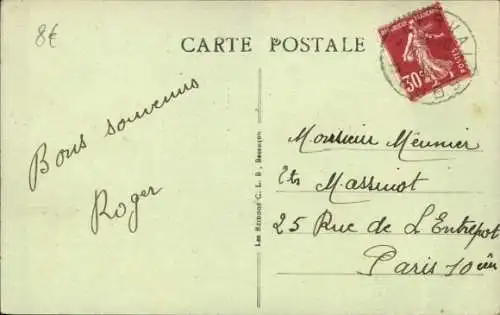 8€
CARTE POSTALE
30c
POSTES
Bons souvenirs
Roger
Monsieur Meunier
Ets Massinot
25 Rue de L'Entrepot
Paris 10èm
C. L. B., Besançon